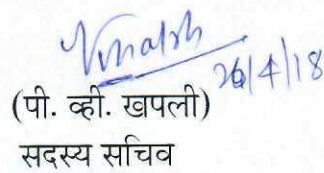 26/4/18
(पी. व्ही. खपली)
सदस्य सचिव